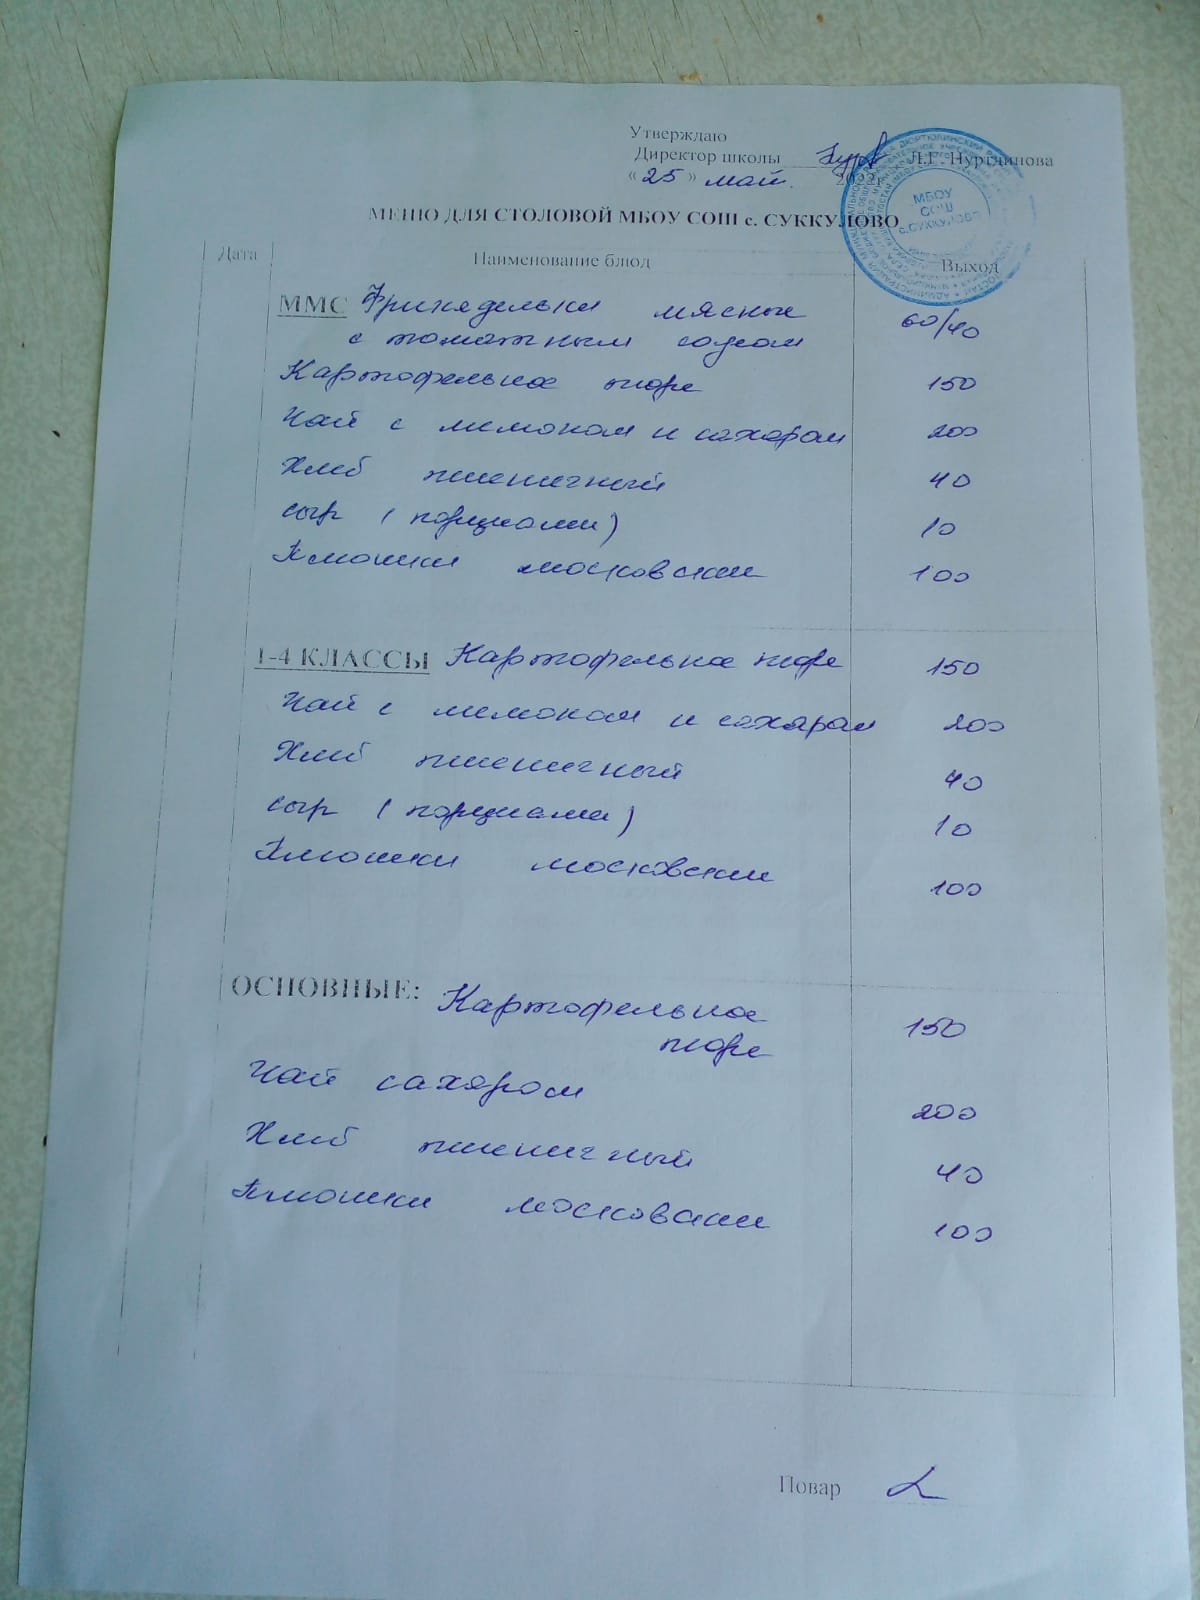 Утверждаю
Директор школы Л.Г. Нуртдинова
« 25 » май. 2022г.
МБОУ
СОШ
с.СУККУЛОВО
МЕНЮ ДЛЯ СТОЛОВОЙ МБОУ СОШ с. СУККУЛОВО
Дата Наименование блюд Выход
ММС Фрикадельки мясные 60/40
с томатным соусом
Картофельное пюре 150
Чай с лимоном и сахаром 200
Хлеб пшеничный 40
сыр (порциями) 10
Плюшки московские 100
1-4 КЛАССЫ Картофельное пюре 150
Чай с лимоном и сахаром 200
Хлеб пшеничный 40
сыр (порциями) 10
Плюшки московские 100
ОСНОВНЫЕ: Картофельное
пюре 150
Чай сахаром 200
Хлеб пшеничный 40
Плюшки московские 100
Повар